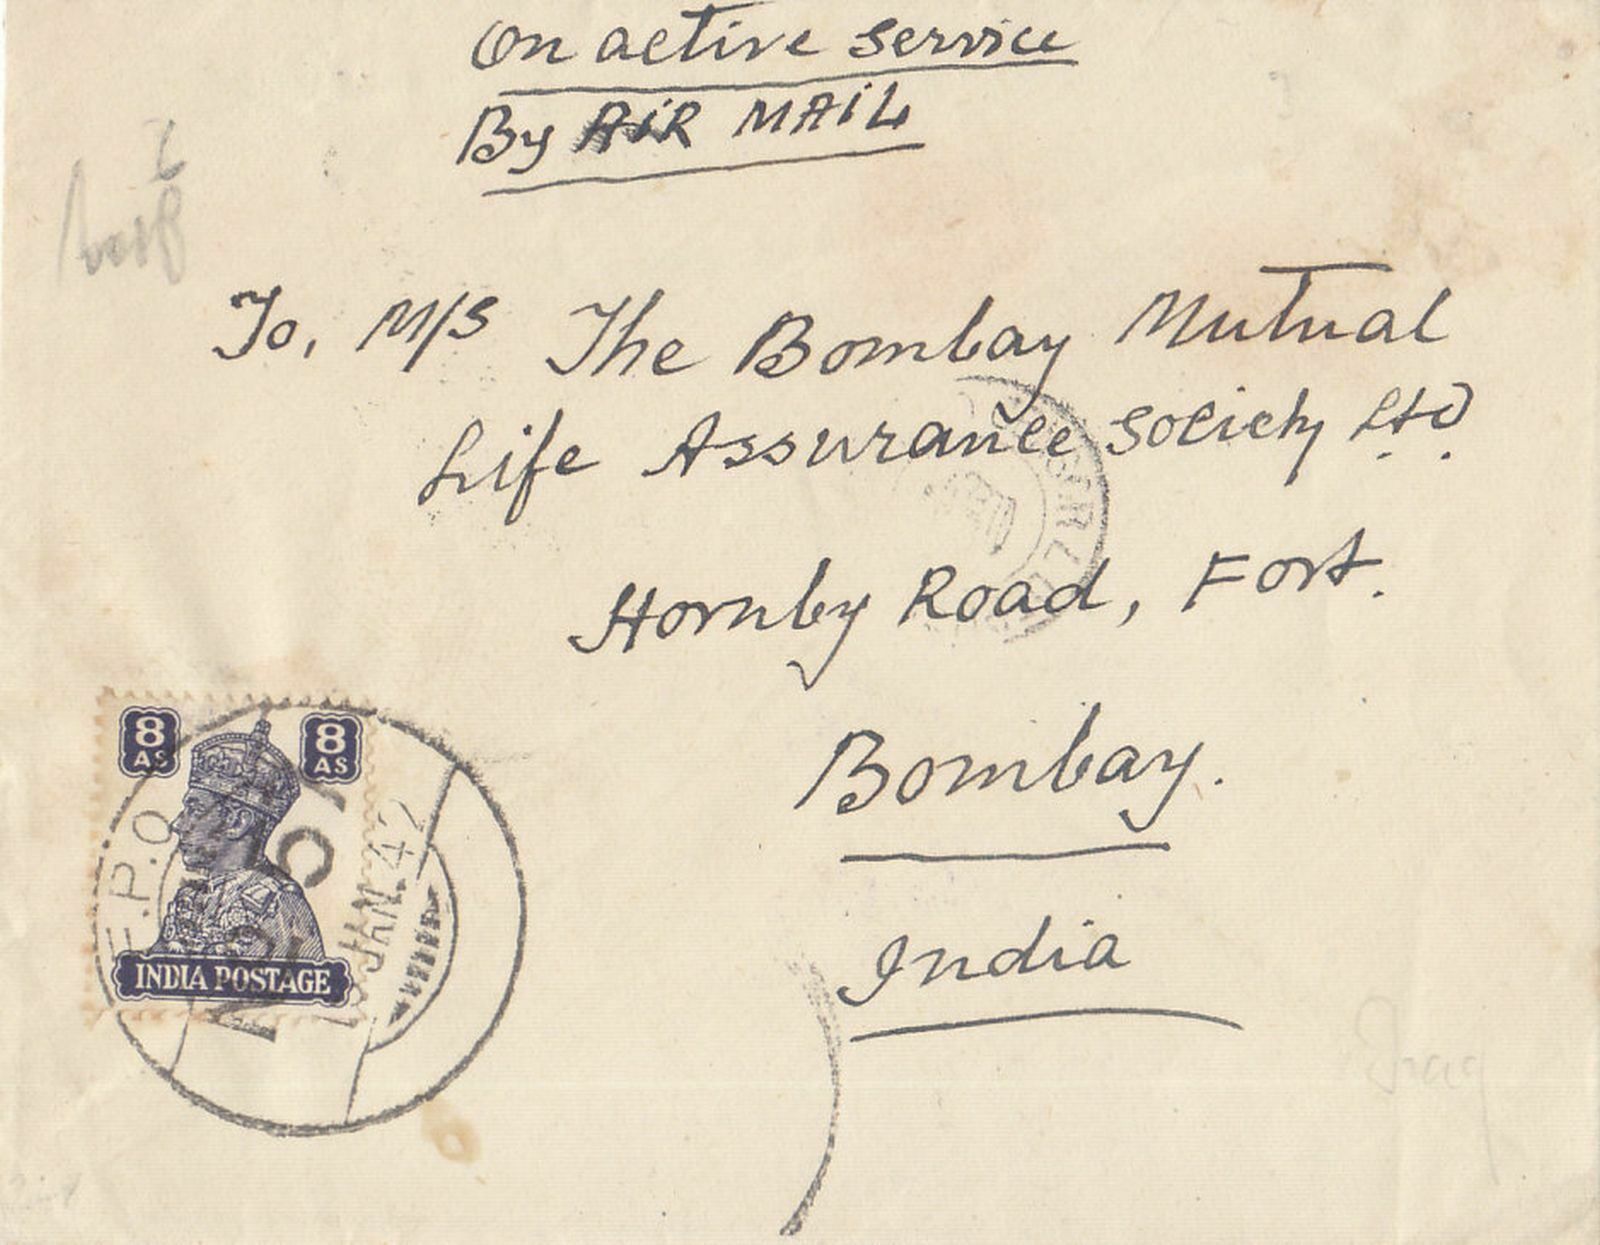 On active service
By AIR MAIL
To, M/S The Bombay Mutual
Life Assurance Society Ltd.
Hornby Road, Fort.
Bombay.
India
8 AS 8 AS
F.P.O.
JAN. 42
INDIA POSTAGE
Iraq